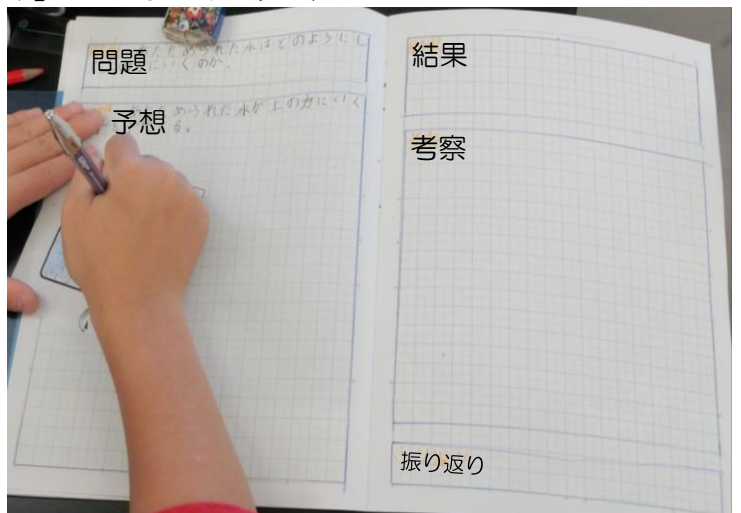 問題
められた水はどのようにも
にいくのか。
予想
められた水が上の方にいく
る。
結果
考察
振り返り